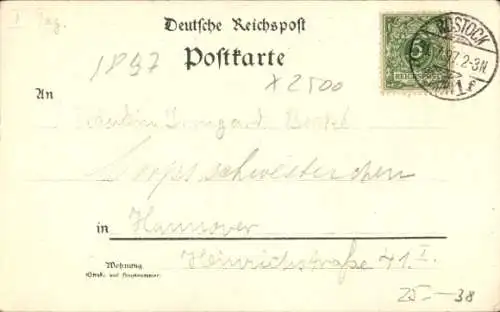 I Tag.
Deutsche Reichspost
Postkarte
1897
x 2500
5
REICHSPOST
ROSTOCK
7.97. 2-3N
1 f
An
Fräulein Irmgard
Corpsschwesterchen
in Hannover
Wohnung
(Straße und Hausnummer)
Heinrichstraße 41. I.
25.— 38